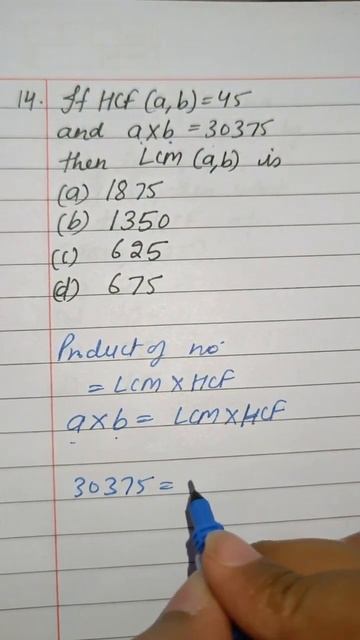 14. If HCF (a,b) = 45
and a×b = 30375
then LCM (a,b) is
(a) 1875
(b) 1350
(c) 625
(d) 675
Product of no.
= LCM × HCF
a×b = LCM × HCF
30375 =